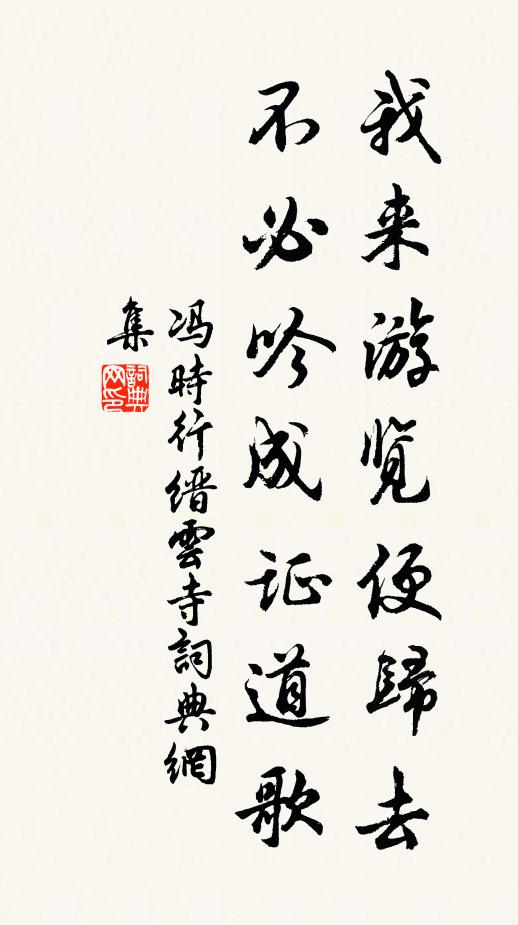 我来游览便歸去
不必吟成证道歌
冯時行缙雲寺詞典網
集
詞典网印